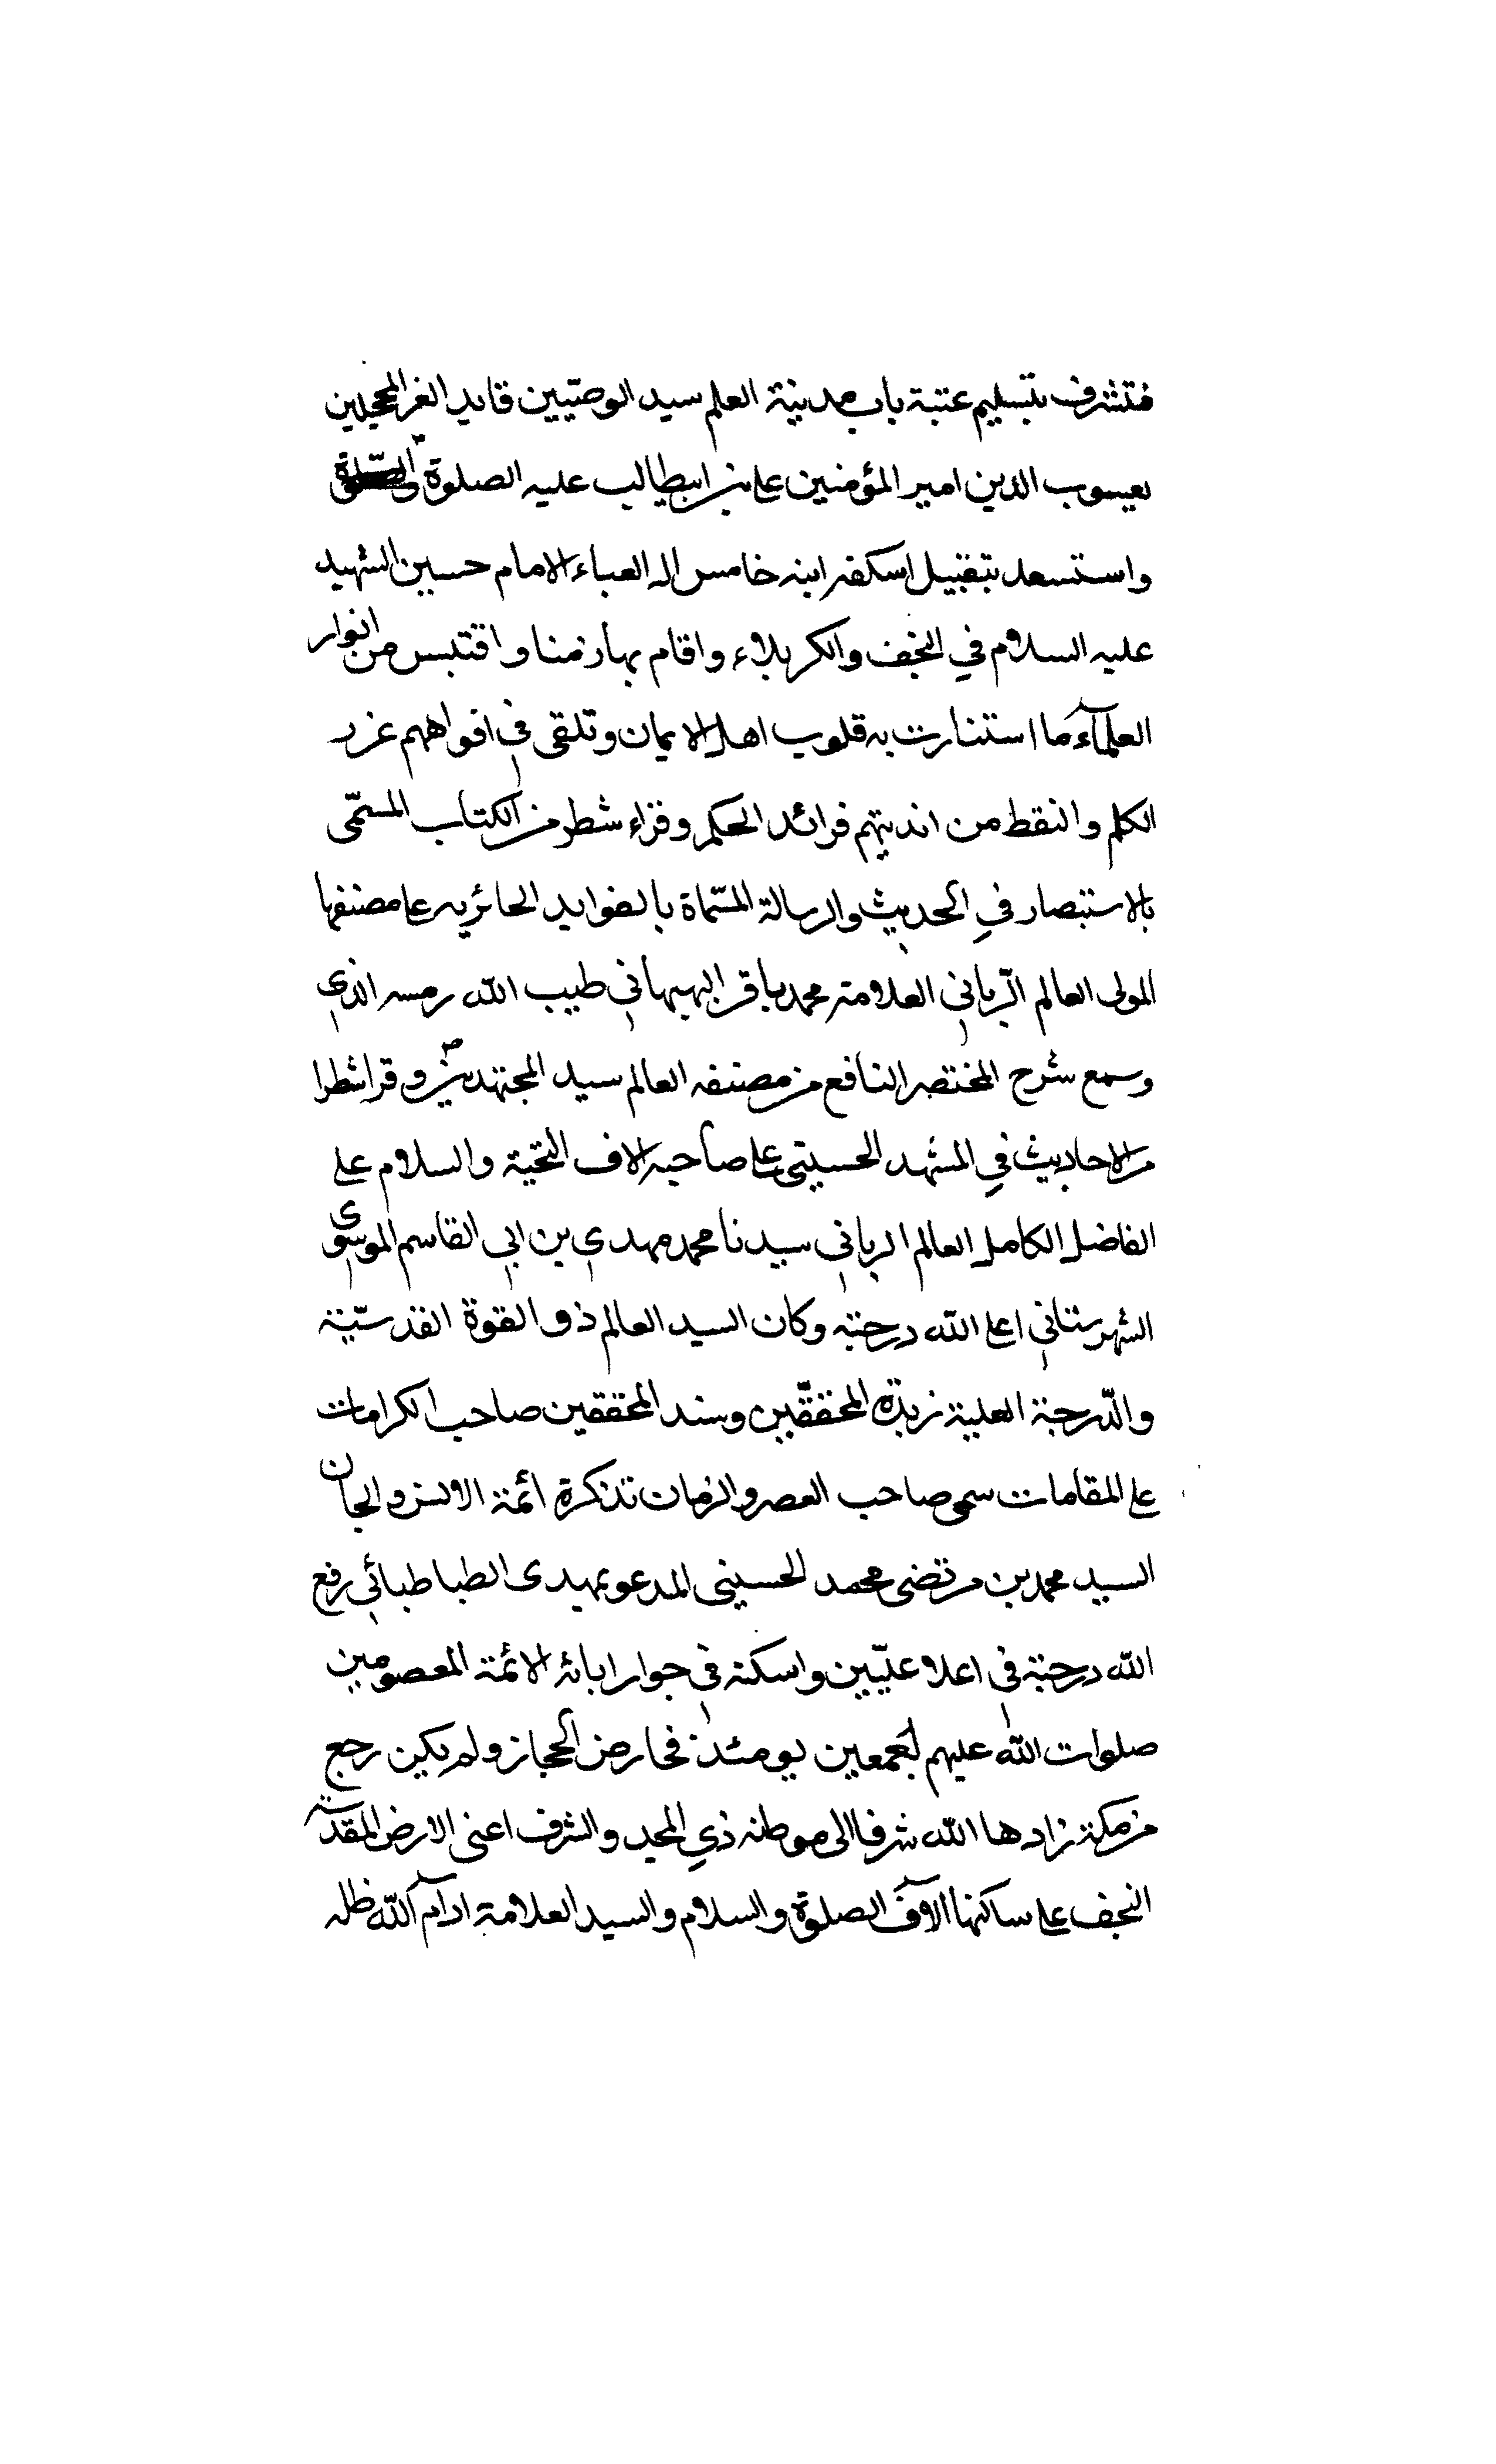 فتشرف بتسليم عتبة باب مدينة العلم سيد الوصيّين قايد الغر المحجلين
يعسوب الدين امير المؤمنين على بن ابيطالب عليه الصلوة
واستسعد بتقبيل اسكفه ابنه خامس اله العباء الامام حسين الشهيد
عليه السلام في النجف والكربلاء واقام بها زمنا واقتبس من انوار
العلمآء ما استنارت به قلوب اهل الايمان وتلقى فى افواههم غرر
الكلم والنقط من انديتهم فرائد الحكم وقراء شطر من الكتاب المسمّى
بالاستبصار في الحديث والرسالة المسّماة بالفوايد الحائريه على مصنفها
المولى العالم الرّباني العلامة محمد باقر البهبهاني طيب الله رمسه الذي
وسمع شرح المختصر النافع من مصنفه العالم سيد المجتهدين وقرا شطرا
من الاحاديث في المشهد الحسيني على صاحبه الاف التحية والسلام على
الفاضل الكامل العالم الرباني سيدنا محمد مهدي بن ابي القاسم الموسوى
الشهرستاني اعلى الله درجته وكان السيد العالم ذو القوة القدسّية
والدّرجة العلية زبدة المحققّين وسند المحققين صاحب الكرامات
على المقامات سمى صاحب العصر والزمان تذكرة ائمة الانس والجان
السيد محمد بن مرتضى محمد الحسينى المدعو بمهدى الطباطبائي رفع
الله درجته فى اعلا عليّين واسكنه فى جوار ابائه الائمة المعصومين
صلوات الله عليهم اجمعين يومئذ فى ارض الحجاز ولم يكن رجع
من مكة زادها الله شرفا الى موطنه ذي المجد والشرف اعنى الارض المقدسة
النجف على ساكنها الآف الصلوة والسلام والسيد العلامة ادآم الله ظله